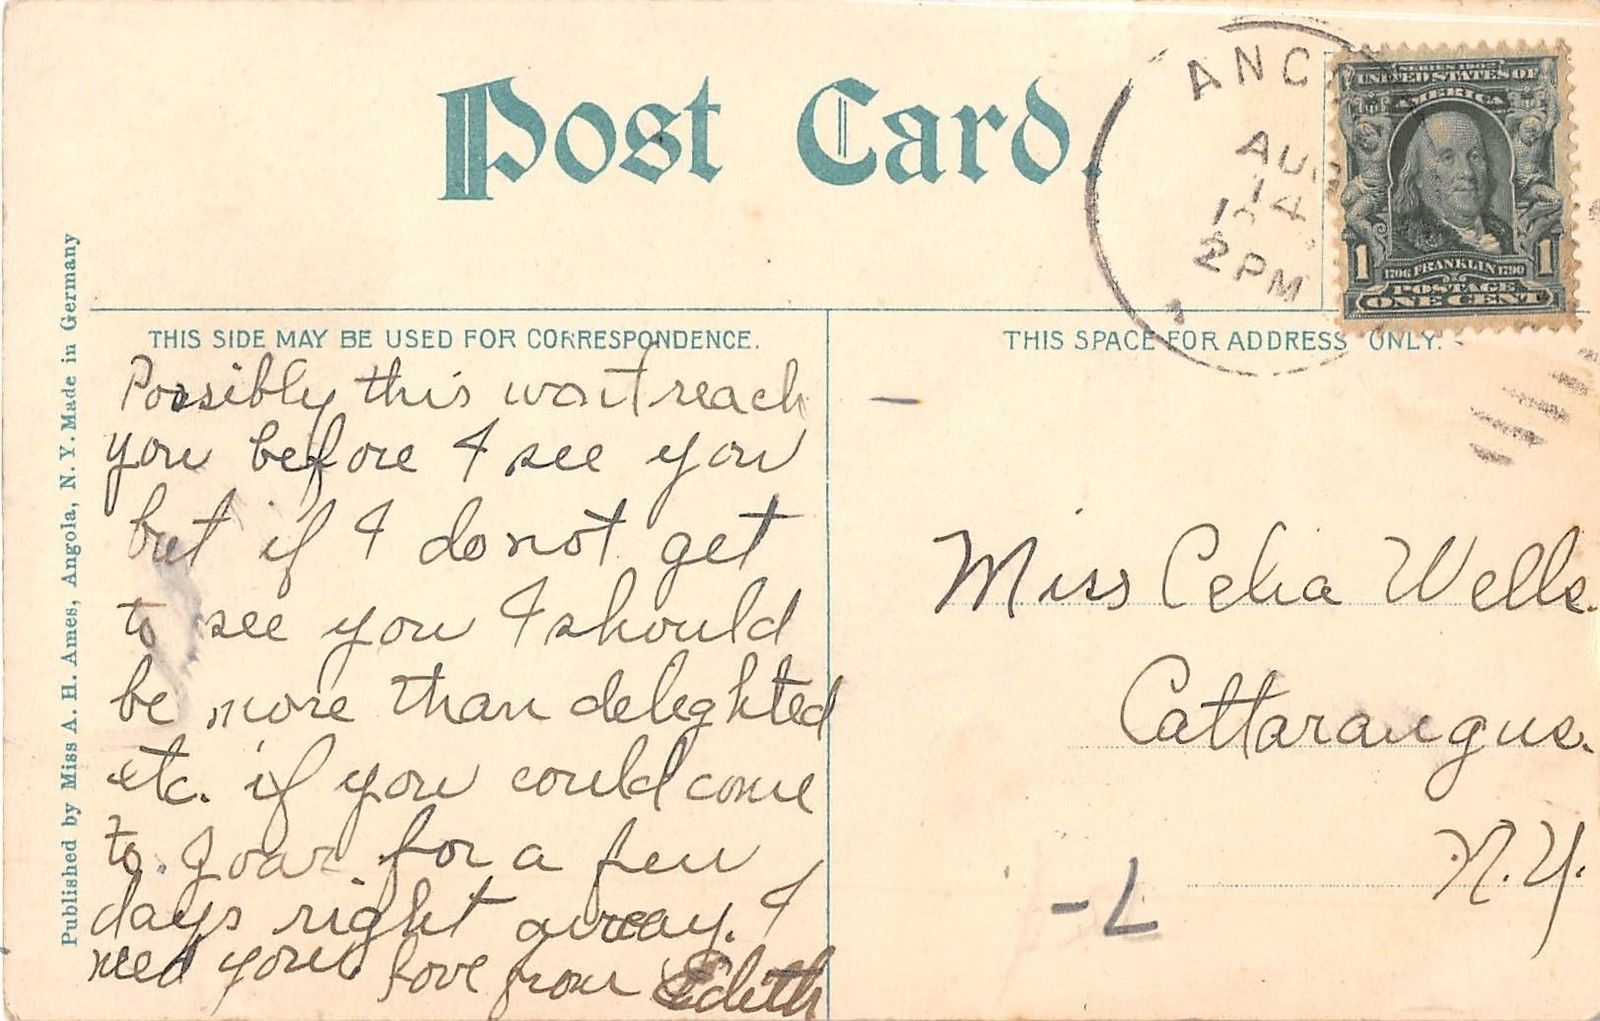 Post Card.
ANG
AUG
14
2 PM
SERIES 1902
UNITED STATES OF
AMERICA
1 1
1706 FRANKLIN 1790
POSTAGE
ONE CENT
Published by Miss A. H. Ames, Angola, N. Y. Made in Germany
THIS SIDE MAY BE USED FOR CORRESPONDENCE.
Possibly this wont reach
you before I see you
but if I do not get
to see you I should
be more than deleghted
etc. if you could come
to for a few
days right away. I
need you. Love from Edith
THIS SPACE FOR ADDRESS ONLY.
Miss Celia Wells.
Cattaraugus.
N.Y.